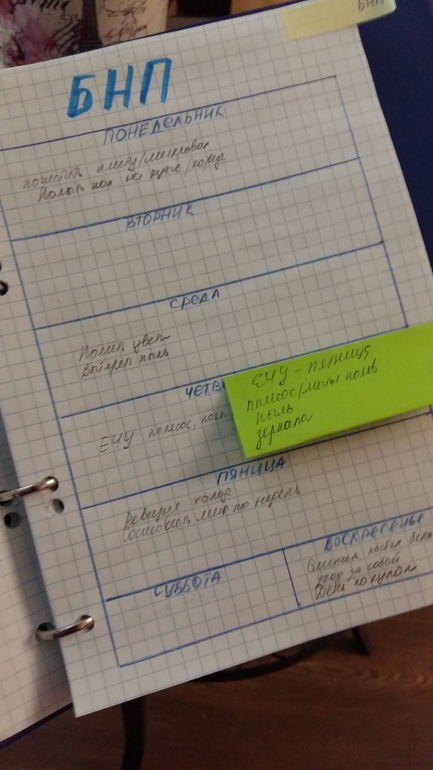 БНП
БНП
ПОНЕДЕЛЬНИК
почистить плиту/микровол
Полить пол на кухне/корид
ВТОРНИК
СРЕДА
Полить цветы
вытереть пыль
ЧЕТВ
ЕЧУ пылесос, полы
ЕЧУ - пятница
пылесос/мытьё полов
пыль
зеркала
ПЯНИЦА
Ревизия холод
Составить меню на неделю
СУББОТА
ВОСКРЕСЕНЬЕ
постел бель
уход за собой
День покупок